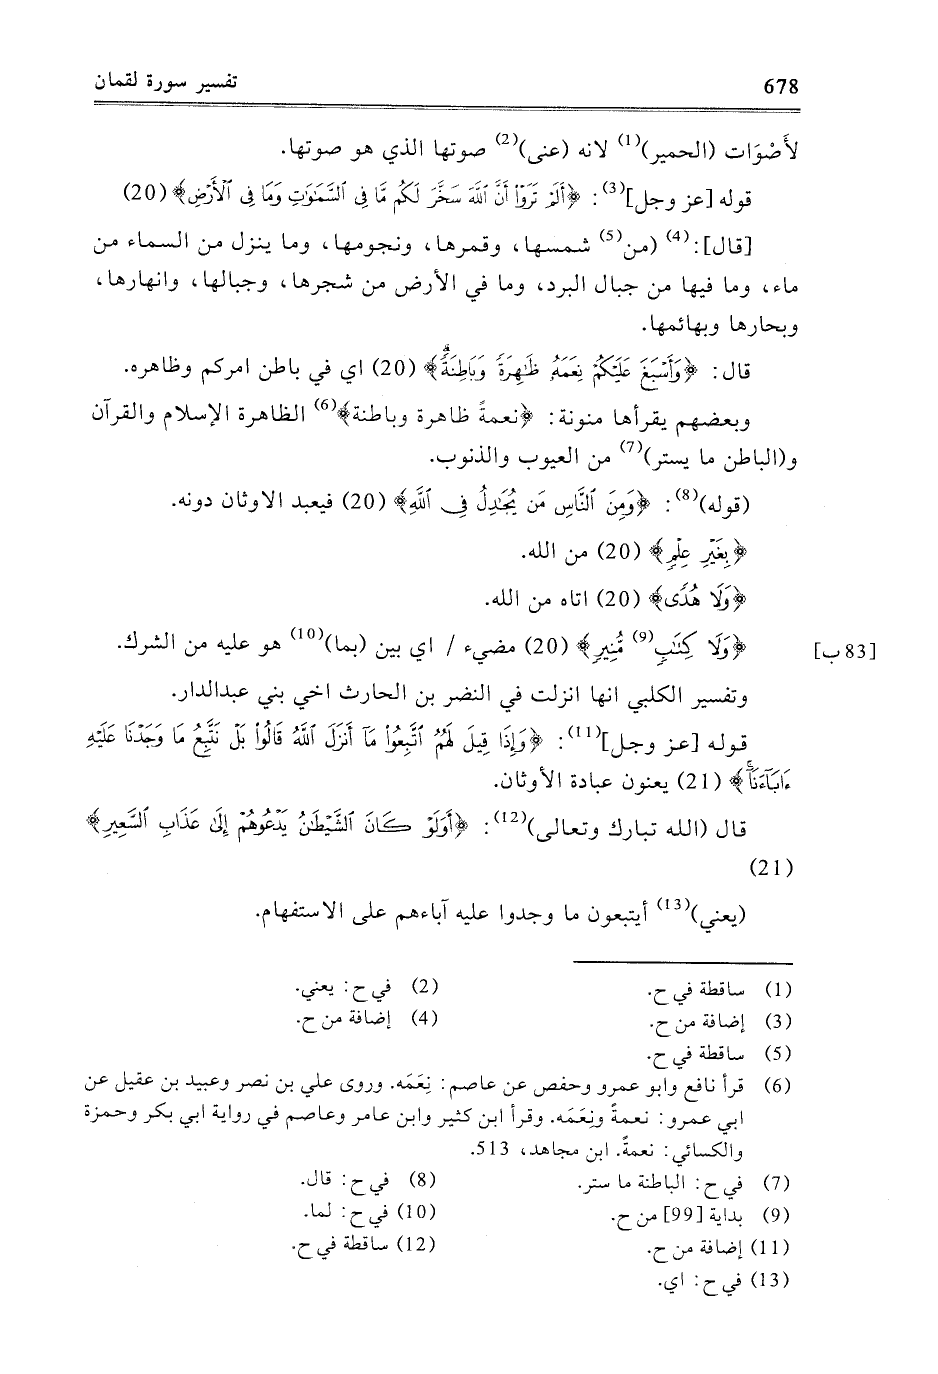 678 تفسير سورة لقمان
لأَصْوَات (الحمير)(1) لانه (عنى)(2) صوتها الذي هو صوتها.
قوله [عز وجل](3): ﴿أَلَمْ تَرَوْاْ أَنَّ ٱللَّهَ سَخَّرَ لَكُم مَّا فِى ٱلسَّمَٰوَٰتِ وَمَا فِى ٱلْأَرْضِ﴾ (20)
[قال]:(4) (من(5) شمسها، وقمرها، ونجومها، وما ينزل من السماء من
ماء، وما فيها من جبال البرد، وما في الأرض من شجرها، وجبالها، وانهارها،
وبحارها وبهائمها.
قال: ﴿وَأَسْبَغَ عَلَيْكُمْ نِعَمَهُۥ ظَٰهِرَةً وَبَاطِنَةً﴾ (20) اي في باطن امركم وظاهره.
وبعضهم يقرأها منونة: ﴿نعمةً ظاهرة وباطنة﴾(6) الظاهرة الإسلام والقرآن
و(الباطن ما يستر)(7) من العيوب والذنوب.
(قوله)(8): ﴿وَمِنَ ٱلنَّاسِ مَن يُجَٰدِلُ فِى ٱللَّهِ﴾ (20) فيعبد الاوثان دونه.
﴿بِغَيْرِ عِلْمٍ﴾ (20) من الله.
﴿وَلَا هُدًى﴾ (20) اتاه من الله.
﴿وَلَا كِتَٰبٍ(9) مُّنِيرٍ﴾ (20) مضيء / اي بين (بما)(10) هو عليه من الشرك. [83 ب]
وتفسير الكلبي انها انزلت في النضر بن الحارث اخي بني عبدالدار.
قوله [عز وجل](11): ﴿وَإِذَا قِيلَ لَهُمُ ٱتَّبِعُواْ مَآ أَنزَلَ ٱللَّهُ قَالُواْ بَلْ نَتَّبِعُ مَا وَجَدْنَا عَلَيْهِ
ءَابَآءَنَآ﴾ (21) يعنون عبادة الأوثان.
قال (الله تبارك وتعالى)(12): ﴿أَوَلَوْ كَانَ ٱلشَّيْطَٰنُ يَدْعُوهُمْ إِلَىٰ عَذَابِ ٱلسَّعِيرِ﴾
(21)
(يعني)(13) أيتبعون ما وجدوا عليه آباءهم على الاستفهام.
(1) ساقطة في ح. (2) في ح: يعني.
(3) إضافة من ح. (4) إضافة من ح.
(5) ساقطة في ح.
(6) قرأ نافع وابو عمرو وحفص عن عاصم: نِعَمَه. وروى علي بن نصر وعبيد بن عقيل عن
ابي عمرو: نعمةً ونِعَمَه. وقرأ ابن كثير وابن عامر وعاصم في رواية ابي بكر وحمزة
والكسائي: نعمةً. ابن مجاهد، 513.
(7) في ح: الباطنة ما ستر. (8) في ح: قال.
(9) بداية [99] من ح. (10) في ح: لما.
(11) إضافة من ح. (12) ساقطة في ح.
(13) في ح: اي.